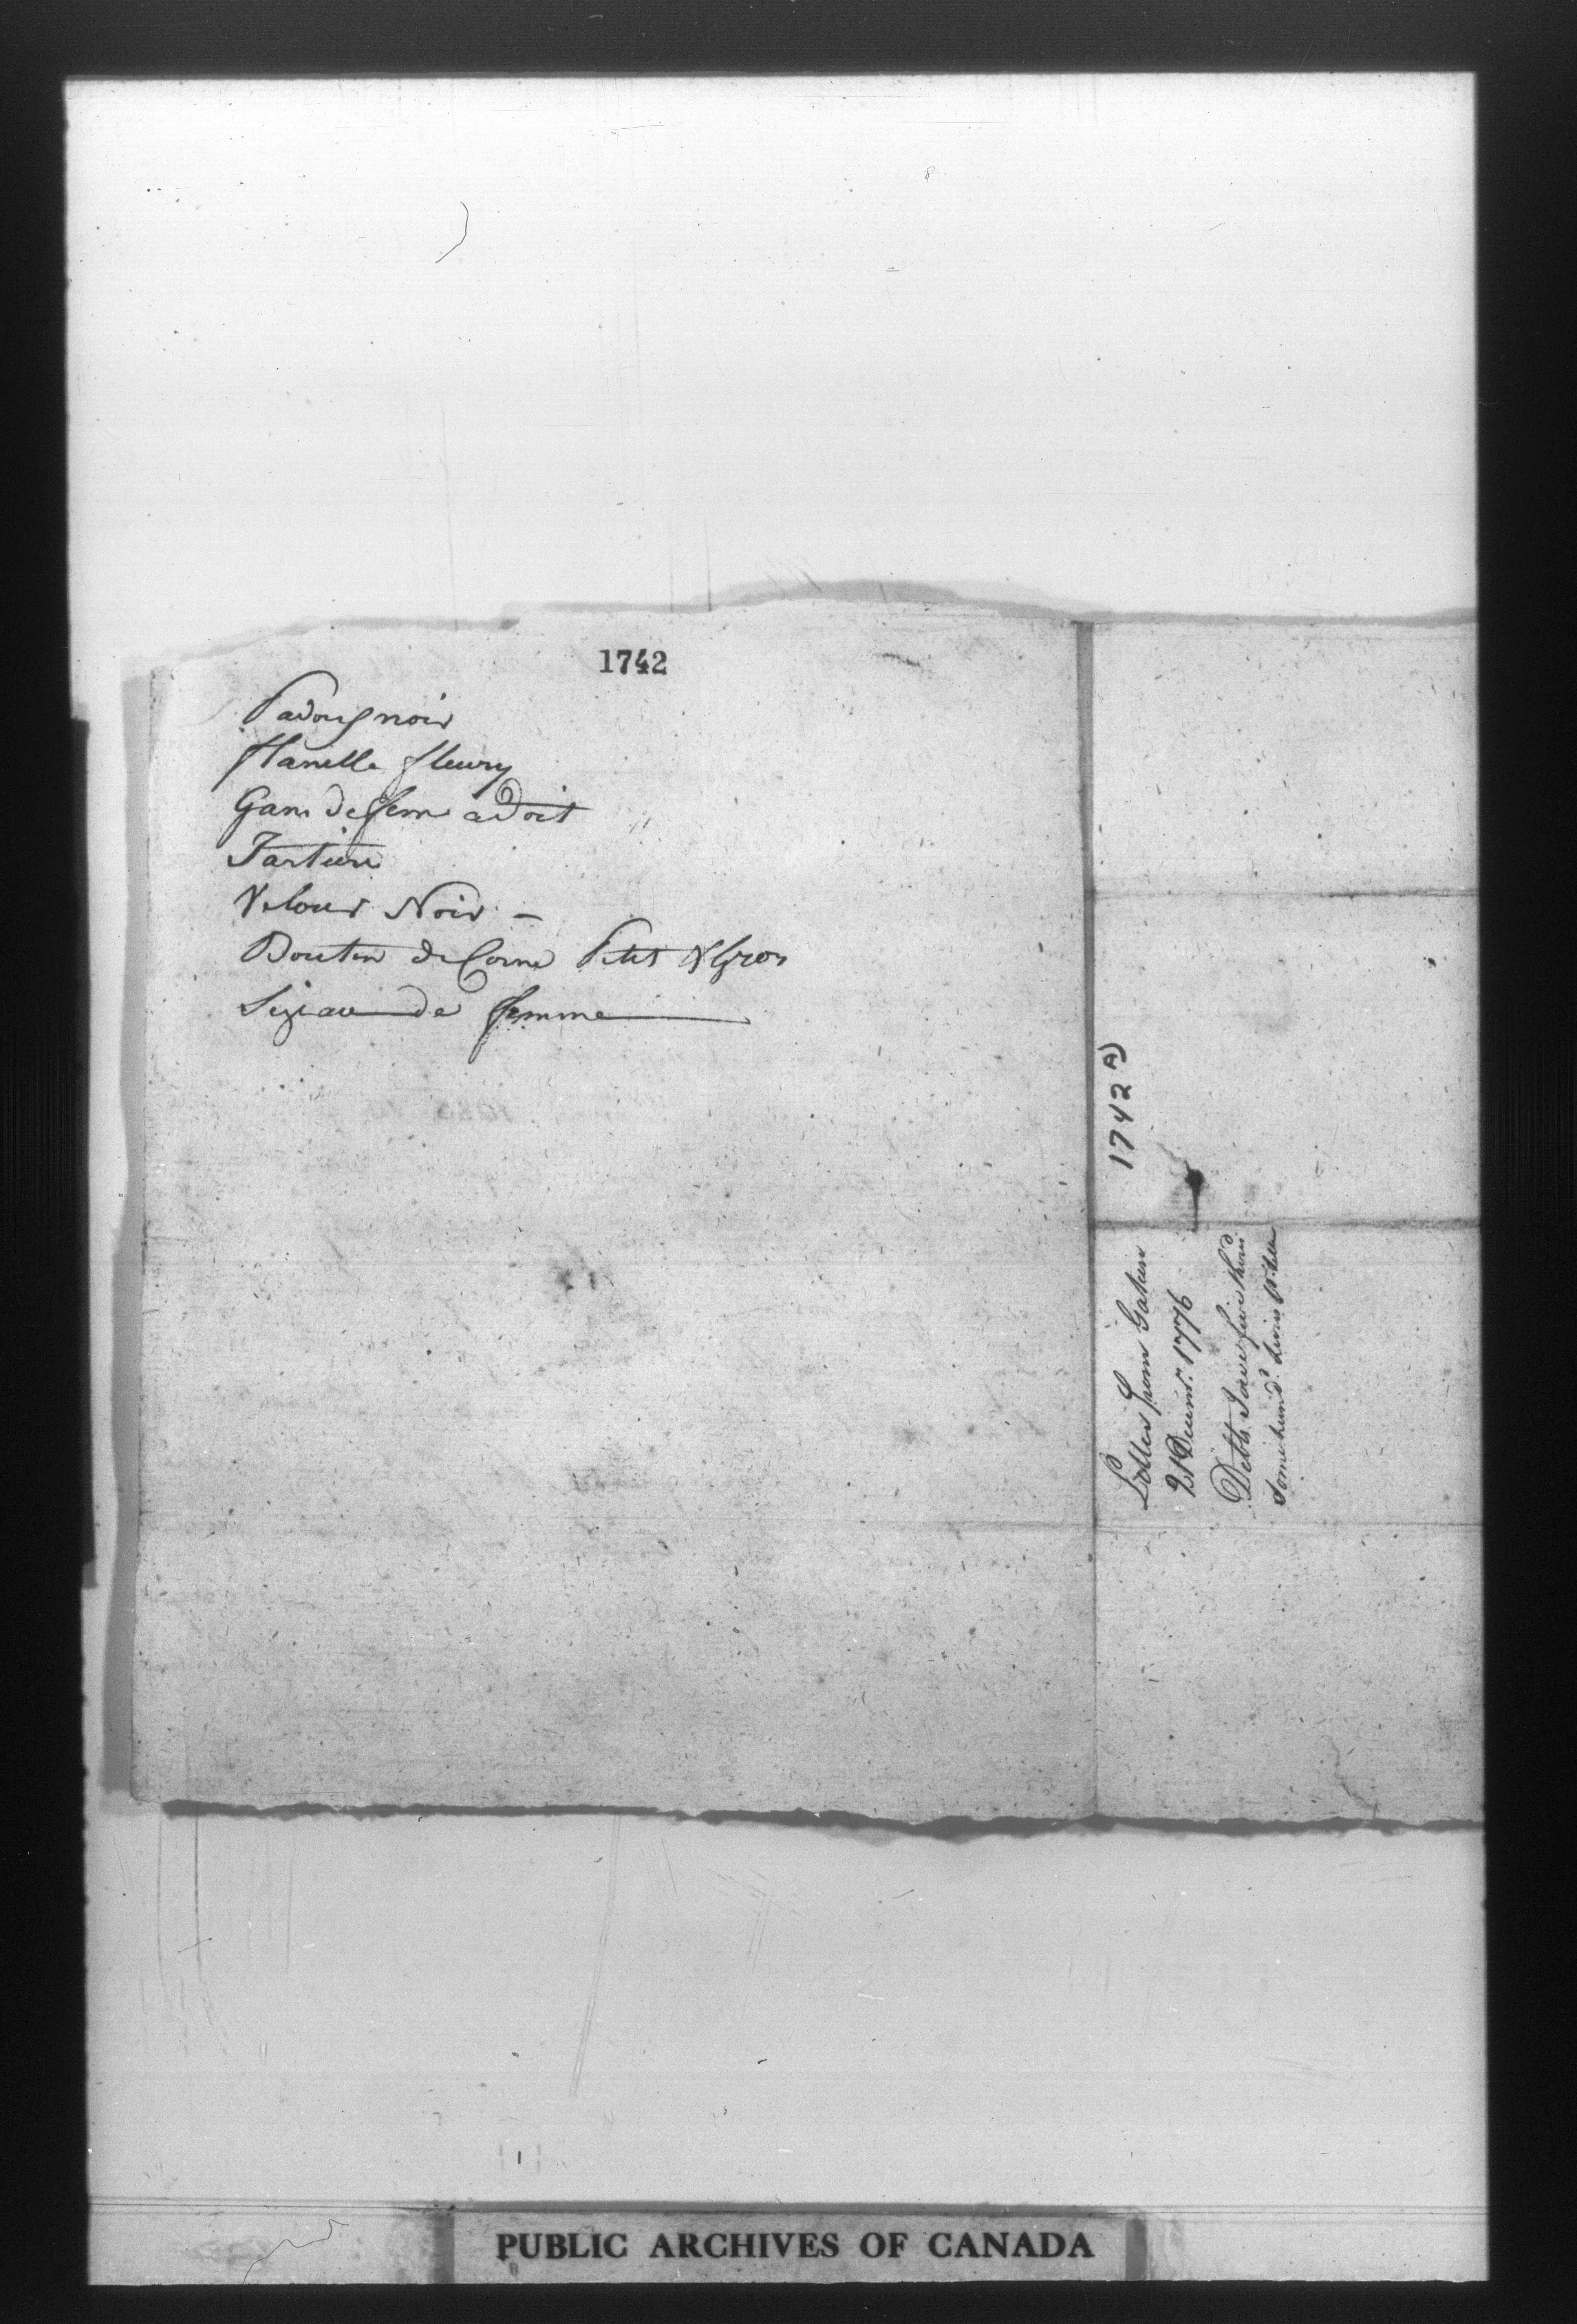 1742
Padoug noir
flanelle fleury
Gam de fem a Doit
Tartire
Velour Noir –
Bouton de Corne Petit & Gros
Siziau de femme
1742 A)
Letter from
21 Decemr. 1776
Debts
some hund.d livres
PUBLIC ARCHIVES OF CANADA